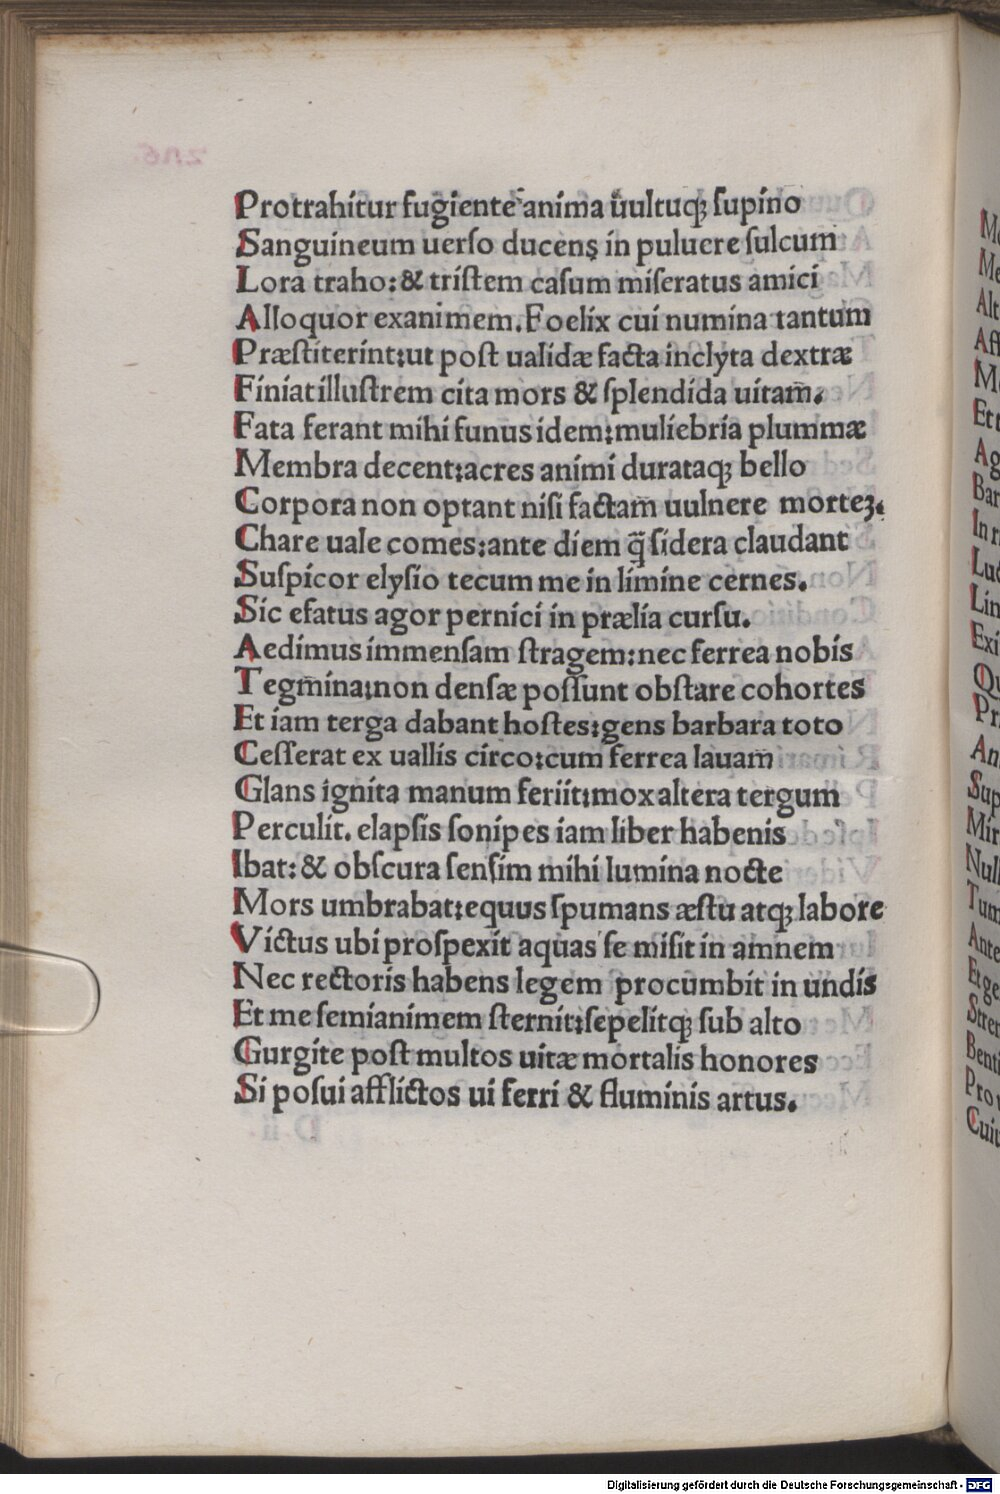 Protrahitur fugiente anima uultuqꝫ ſupino
Sanguineum uerſo ducens in puluere ſulcum
Lora traho: & triſtem caſum miſeratus amici
Alloquor exanimem. Foelix cui numina tantum
Præſtiterint: ut poſt ualidæ facta inclyta dextræ
Finiat illuſtrem cita mors & ſplendida uitam.
Fata ferant mihi funus idem: muliebria plummæ
Membra decent: acres animi durataqꝫ bello
Corpora non optant niſi factam uulnere morteꝫ.
Chare uale comes: ante diem q̃ ſidera claudant
Suſpicor elyſio tecum me in limine cernes.
Sic efatus agor pernici in prælia curſu.
Aedimus immenſam ſtragem: nec ferrea nobis
Tegmina: non denſæ poſſunt obſtare cohortes
Et iam terga dabant hoſtes: gens barbara toto
Ceſſerat ex uallis circo: cum ferrea lauam
Glans ignita manum feriit: mox altera tergum
Perculit. elapſis ſonipes iam liber habenis
Ibat: & obſcura ſenſim mihi lumina nocte
Mors umbrabat: equus ſpumans æſtu atqꝫ labore
Victus ubi proſpexit aquas ſe miſit in amnem
Nec rectoris habens legem procumbit in undis
Et me ſemianimem ſternit: ſepelitqꝫ ſub alto
Gurgite poſt multos uitæ mortalis honores
Si poſui afflictos ui ferri & fluminis artus.
Digitalisierung gefördert durch die Deutsche Forschungsgemeinschaft - DFG